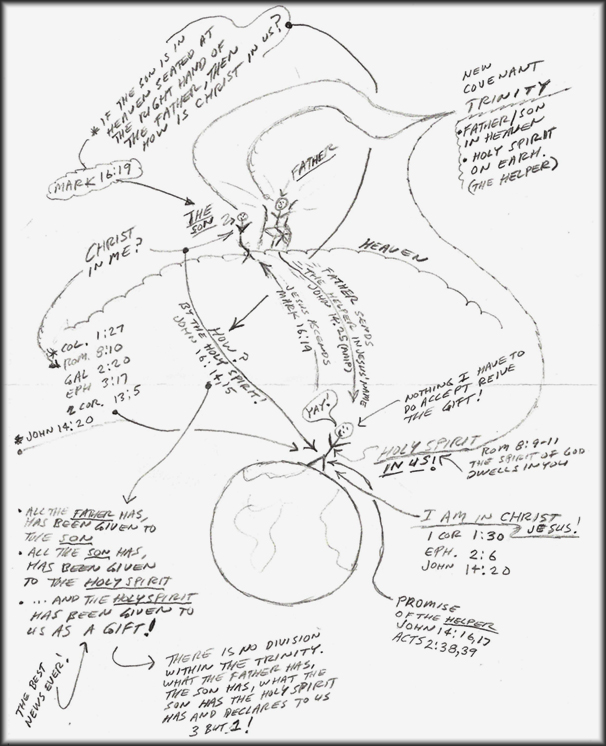 * IF THE SON IS IN
HEAVEN SEATED AT
THE RIGHT HAND OF
THE FATHER, THEN
HOW IS CHRIST IN US?
MARK 16:19
NEW
COVENANT
TRINITY
• FATHER/SON
IN HEAVEN
• HOLY SPIRIT
ON EARH.
(THE HELPER)
FATHER
THE
SON
HEAVEN
CHRIST
IN ME?
* COL. 1:27
ROM. 8:10
GAL 2:20
EPH 3:17
2 COR. 13:5
* JOHN 14:20
HOW?
BY THE HOLY SPIRIT!
JOHN 16:14,15
JESUS ASCENDS
MARK 16:19
FATHER SENDS
THE HELPER IN JESUS' NAME
JOHN 14:25 (AMP)
YAY!
NOTHING I HAVE TO
DO ACCEPT REIVE
THE GIFT!
HOLY SPIRIT
IN US!
ROM 8:9-11
THE SPIRIT OF GOD
DWELLS IN YOU
I AM IN CHRIST
JESUS!
1 COR 1:30
EPH. 2:6
JOHN 14:20
PROMISE
OF THE HELPER
JOHN 14:16,17
ACTS 2:38,39
• ALL THE FATHER HAS,
HAS BEEN GIVEN TO
THE SON
• ALL THE SON HAS,
HAS BEEN GIVEN
TO THE HOLY SPIRIT
• ... AND THE HOLY SPIRIT
HAS BEEN GIVEN TO
US AS A GIFT!
THE BEST
NEWS EVER!
THERE IS NO DIVISION
WITHIN THE TRINITY.
WHAT THE FATHER HAS,
THE SON HAS, WHAT THE
SON HAS THE HOLY SPIRIT
HAS AND DECLARES TO US
3 BUT 1!